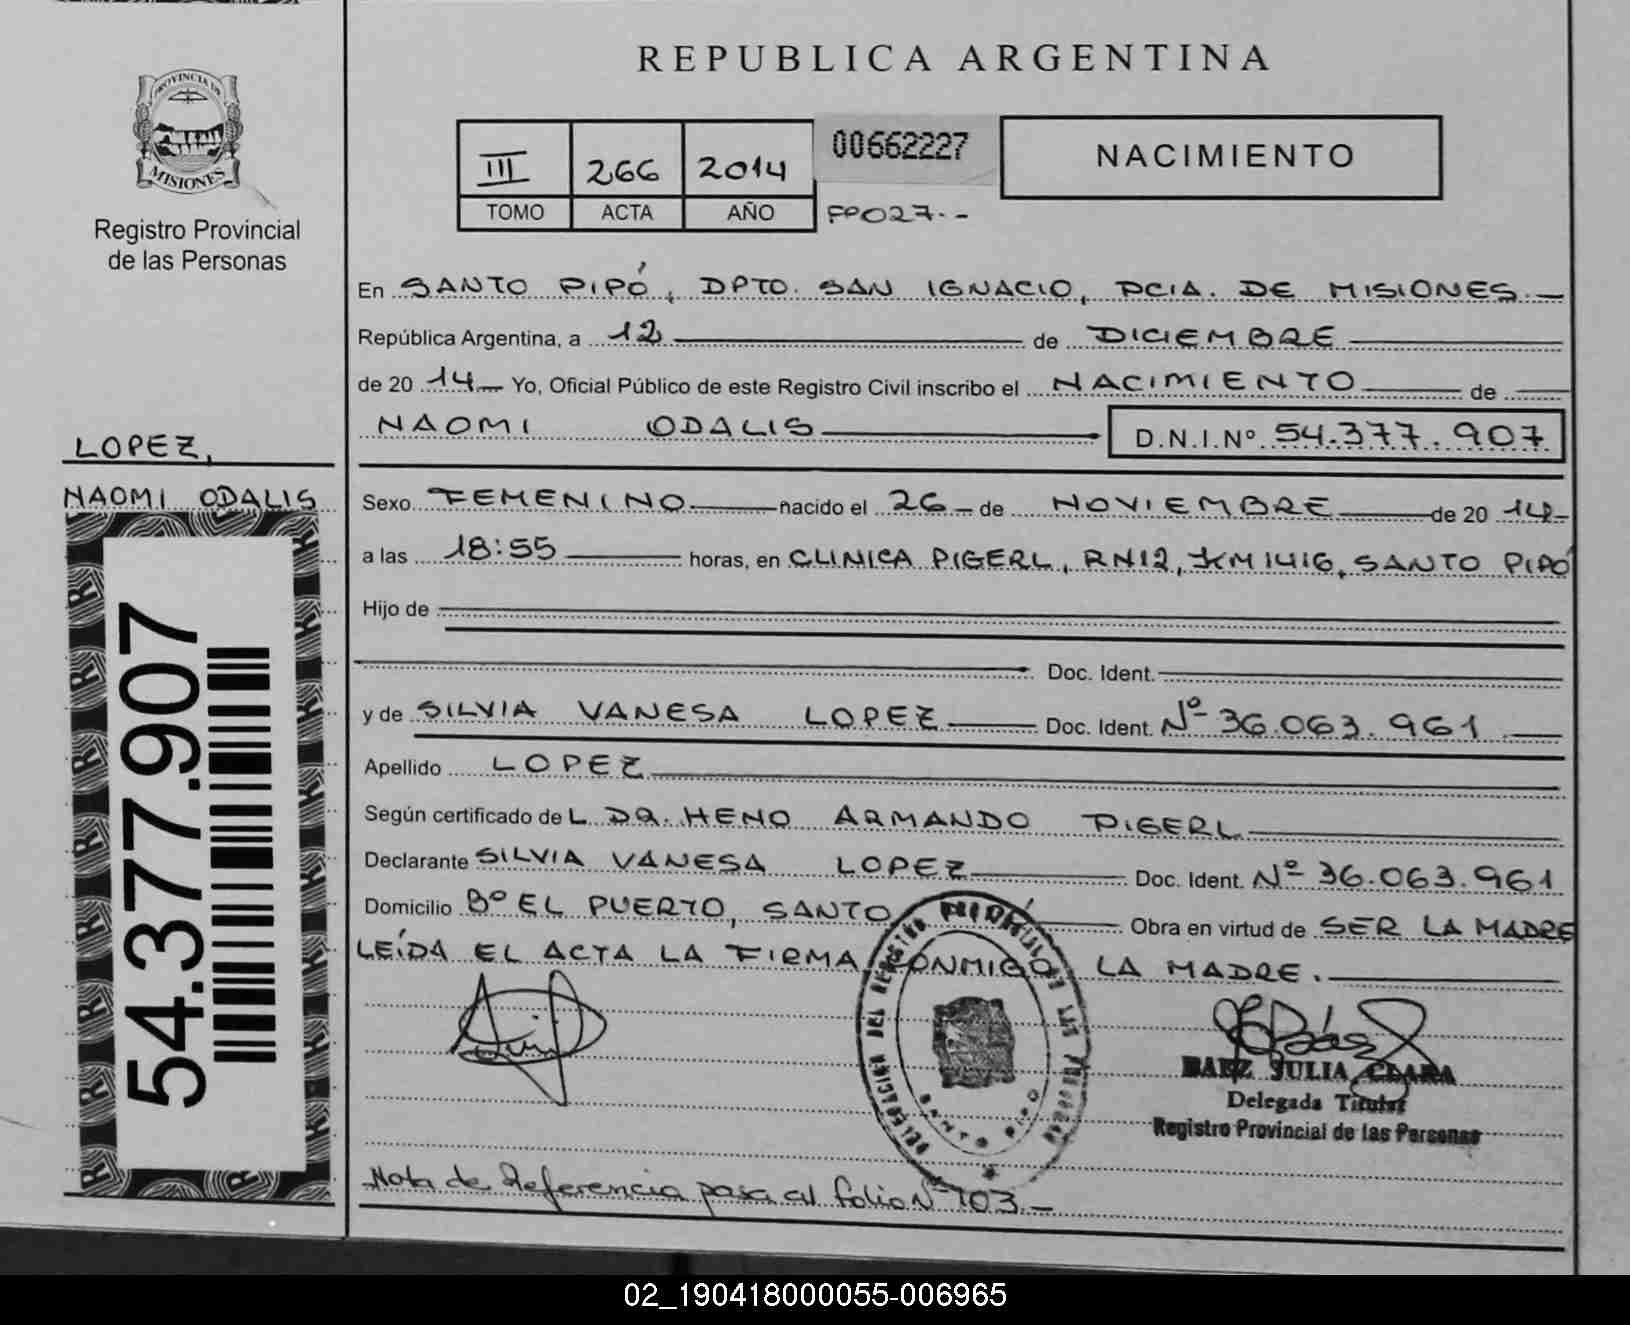 REPUBLICA ARGENTINA
PROVINCIA DE
MISIONES
Registro Provincial
de las Personas
III 266 2014
TOMO ACTA AÑO
00662227
FP027.-
NACIMIENTO
En SANTO PIPÓ, DPTO. SAN IGNACIO, PCIA. DE MISIONES.-
República Argentina, a 12 de DICIEMBRE
de 20 14 Yo, Oficial Público de este Registro Civil inscribo el NACIMIENTO de
NAOMI ODALIS D.N.I.Nº 54.377.907
LOPEZ,
NAOMI ODALIS
54.377.907
Sexo FEMENINO nacido el 26 de NOVIEMBRE de 20 14
a las 18:55 horas, en CLINICA PIGERL, RN12, KM1416, SANTO PIPÓ
Hijo de
Doc. Ident.
y de SILVIA VANESA LOPEZ Doc. Ident. Nº 36.063.961
Apellido LOPEZ
Según certificado de L DR. HENO ARMANDO PIGERL
Declarante SILVIA VANESA LOPEZ Doc. Ident. Nº 36.063.961
Domicilio Bº EL PUERTO, SANTO PIPÓ Obra en virtud de SER LA MADRE
LEÍDA EL ACTA LA FIRMA CONMIGO LA MADRE.
DELEGACION DEL REGISTRO PROVINCIAL DE LAS PERSONAS
SANTO PIPO
BAEZ JULIA CLARA
Delegada Titular
Registro Provincial de las Personas
Nota de Referencia pasa al folio Nº 103.-
02_190418000055-006965